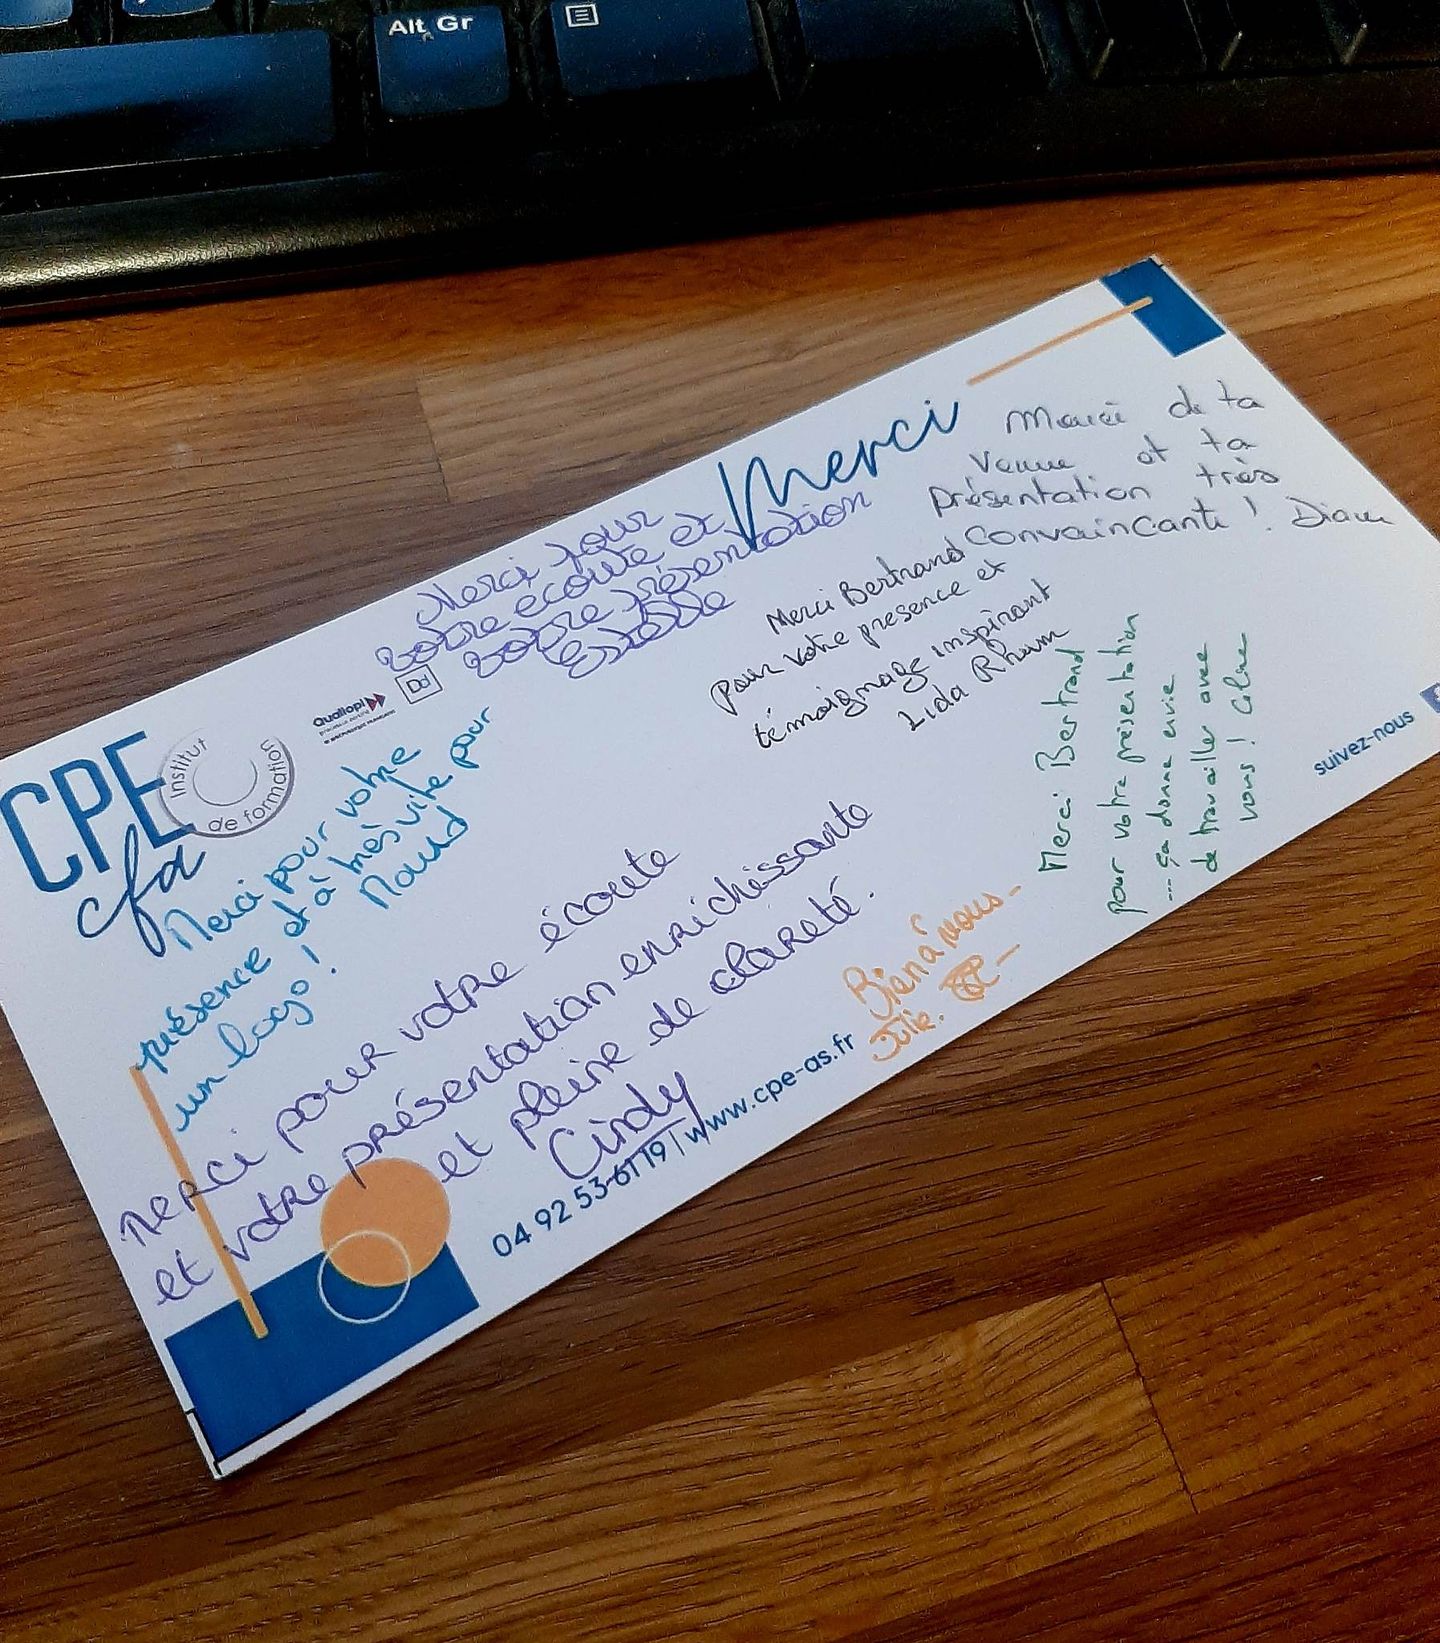 Alt Gr
Merci
Merci de ta
venue et ta
présentation très
convaincante ! Diane
Merci pour
votre écoute et
votre présentation
Estelle
Merci Bertrand
pour votre presence et
témoignage inspirant
Lida Rham
Qualiopi
processus certifié
RÉPUBLIQUE FRANÇAISE
Dd
CPE
cfa
Institut
de formation
Merci pour votre
présence et à très vite pour
un logo !
Maud
Merci Bertrand
pour votre présentation
... ça donne envie
de travailler avec
vous ! Celine
suivez-nous
Merci pour votre écoute
et votre présentation enrichissante
et pleine de clareté.
Cindy
Bien à vous -
Julie.
04 92 53-61 19 | www.cpe-as.fr